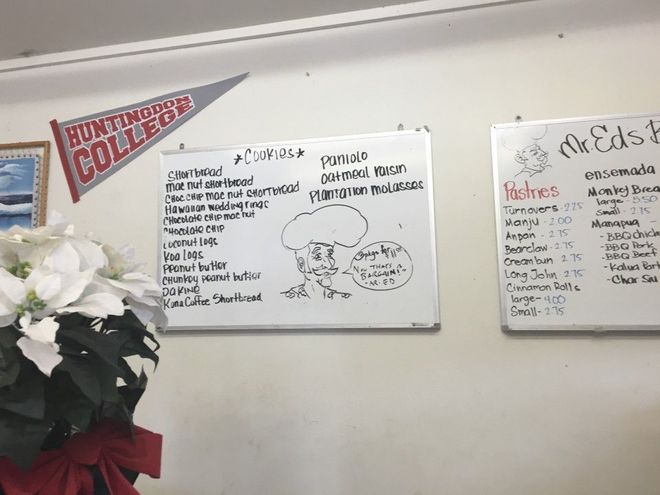 HUNTINGDON
COLLEGE
*Cookies*
Shortbread
mac nut shortbread
Choc chip mac nut shortbread
Hawaiian wedding rings
Chocolate chip mac nut
Chocolate chip
Coconut logs
Koa logs
Peanut butter
Chunkey peanut butter
Da Kine
Kona Coffee Shortbread
Paniolo
Oatmeal raisin
Plantation molasses
THATS A
BARGAIN!
-MR. ED
Mr. Eds
Pastries
Turnovers - 2.75
Manju - 2.00
Anpan - 2.75
Bearclaw - 2.75
Cream bun - 2.75
Long John - 2.75
Cinnamon Rolls
large - 4.00
Small - 2.75
ensemada
Monkey Bread
large - 5.50
small - 2.75
Manapua -
- BBQ Chick
- BBQ Pork
- BBQ Beef
- Kalua Pork
- Char Siu